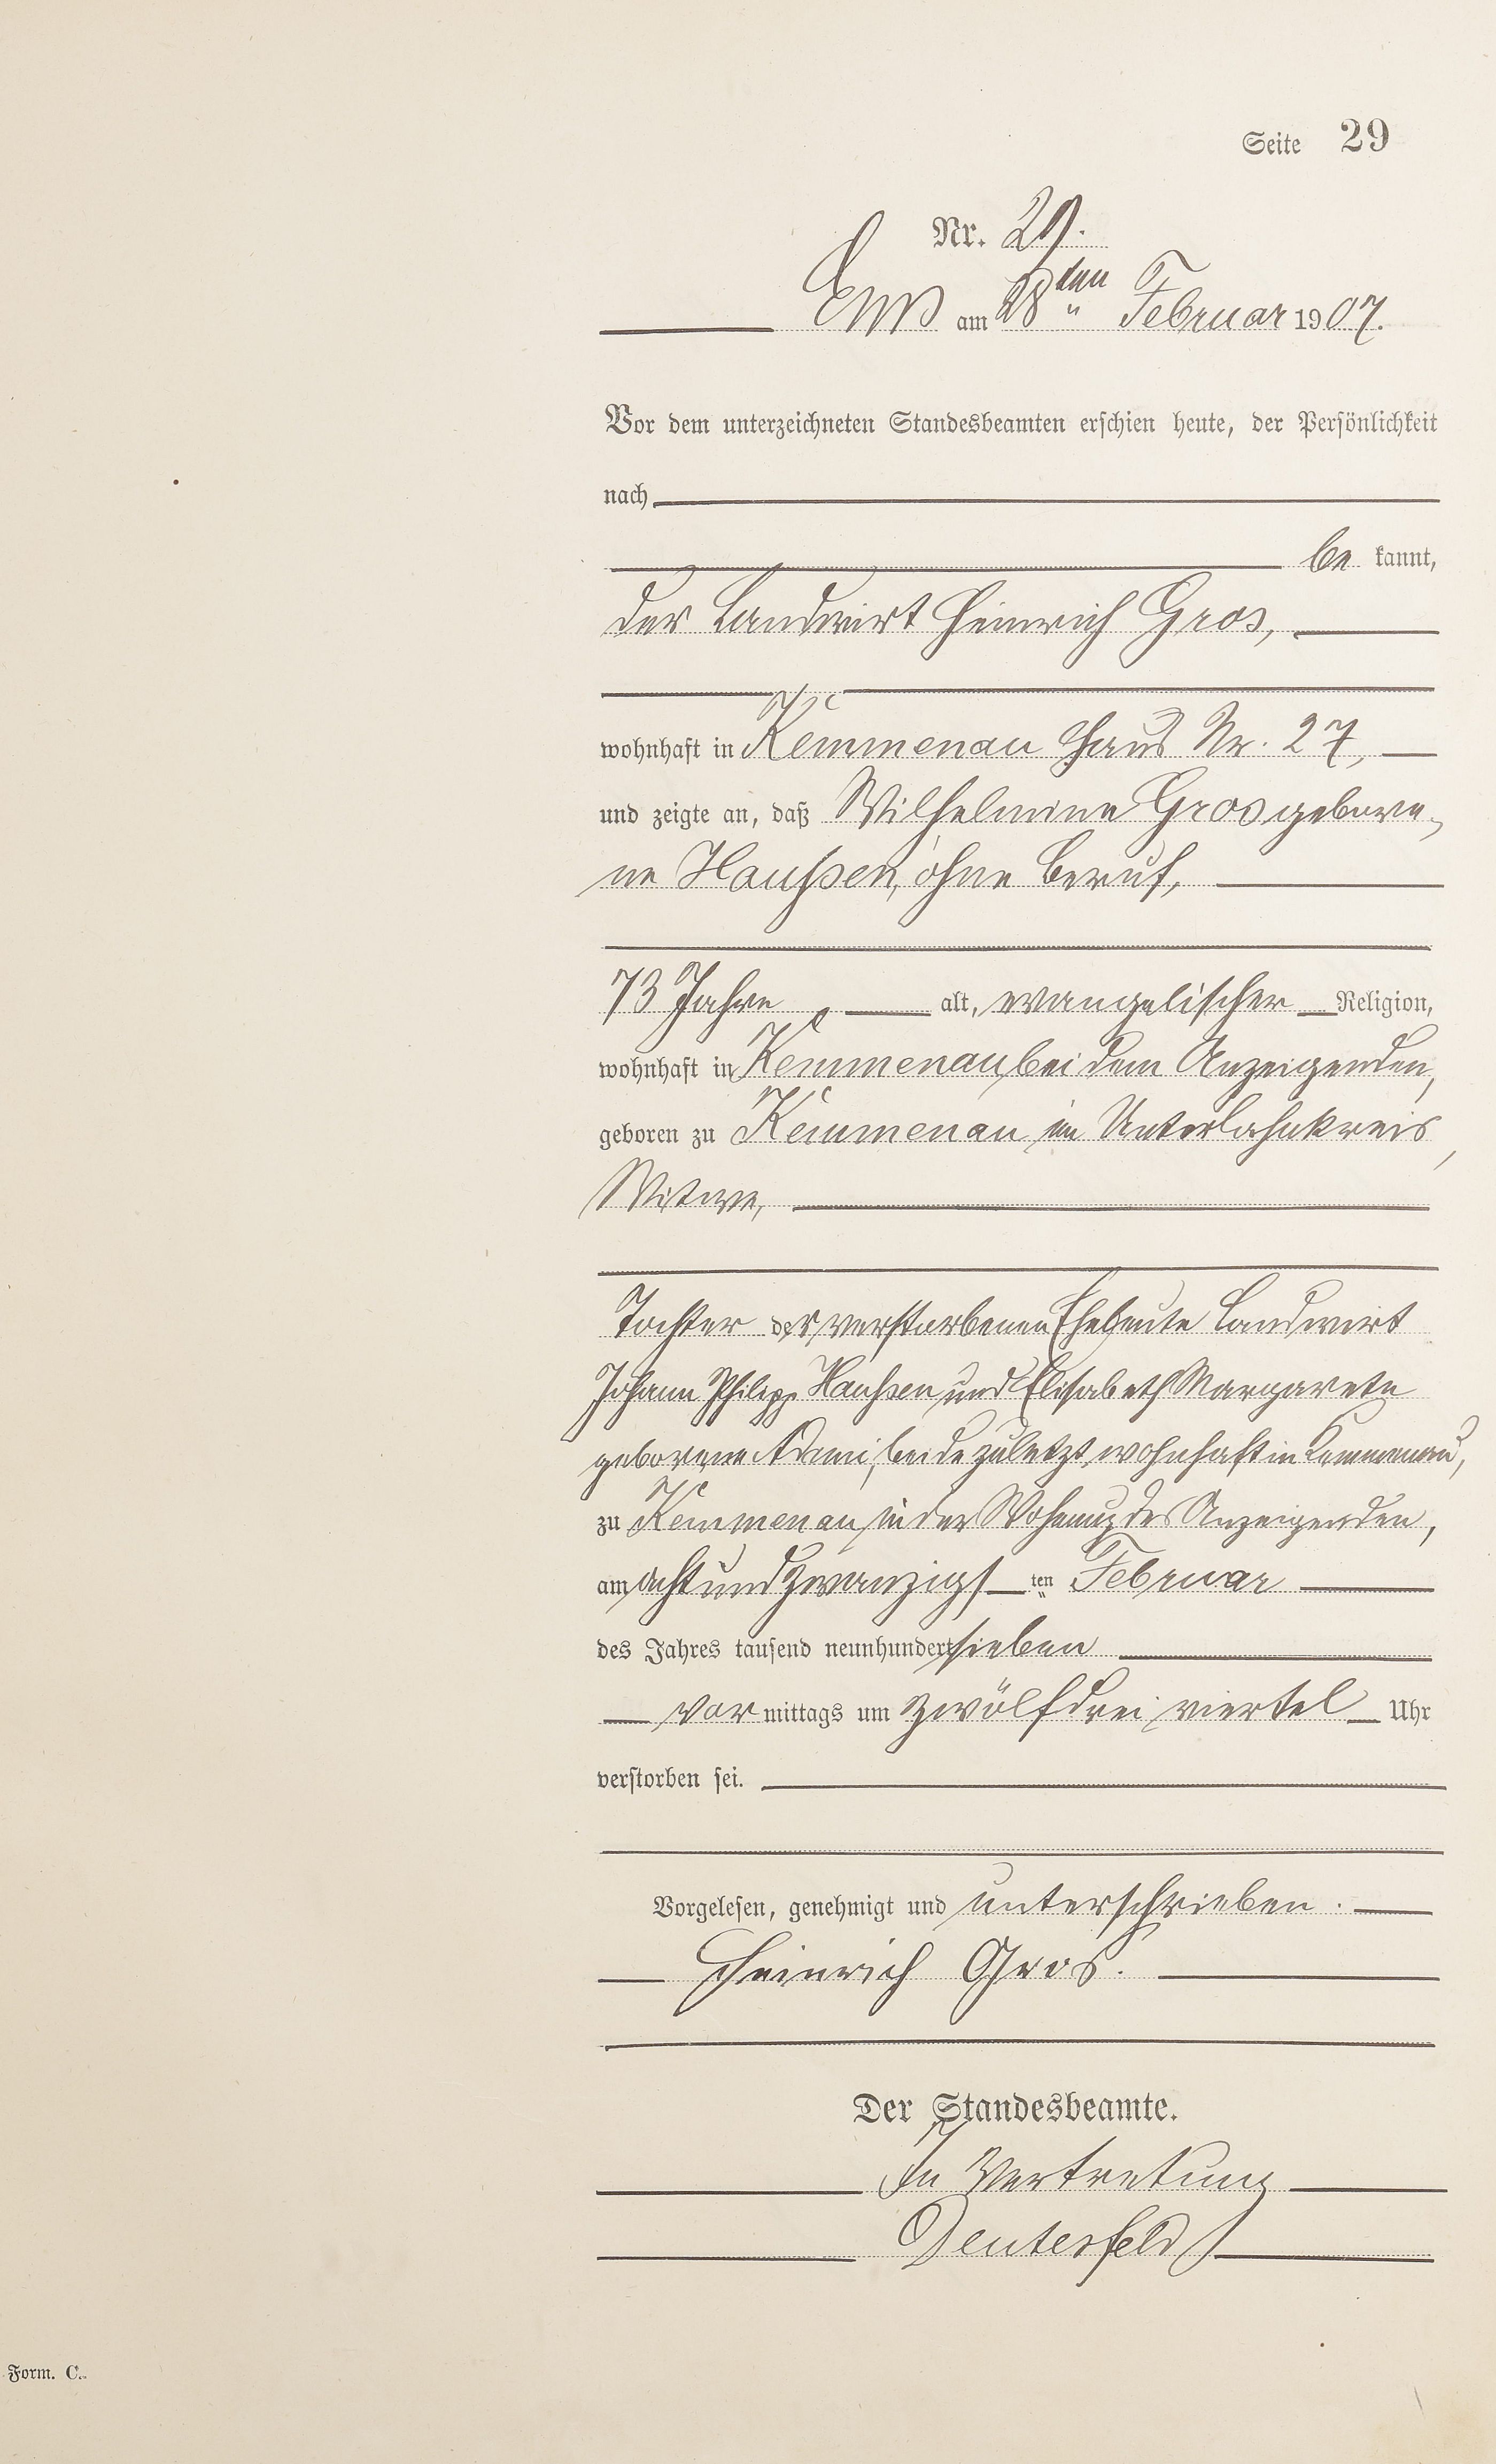 Seite 29
Nr. 29.
Ems am 28ten Februar 1907.
Vor dem unterzeichneten Standesbeamten erschien heute, der Persönlichkeit
nach
be kannt,
der Landwirt Heinrich Gros,
wohnhaft in Kemmenau Haus Nr. 27,
und zeigte an, daß Wilhelmine Gros gebore-
ne Haußen, ohne Beruf,
73 Jahre alt, evangelischer Religion,
wohnhaft in Kemmenau bei dem Anzeigenden,
geboren zu Kemmenau im Unterlahnkreis,
Witwe,
Tochter der verstorbenen Eheleute Landwirt
Johann Philipp Haußen und Elisabeth Margarete
geborene Adami, beide zuletzt wohnhaft in Kemmenau,
zu Kemmenau, in der Wohnung des Anzeigenden,
am achtundzwanzigsten Februar
des Jahres tausend neunhundert sieben
vor mittags um zwölf drei viertel Uhr
verstorben sei.
Vorgelesen, genehmigt und unterschrieben.
Heinrich Gros.
Der Standesbeamte.
In Vertretung
Deutesfeld
Form. C.